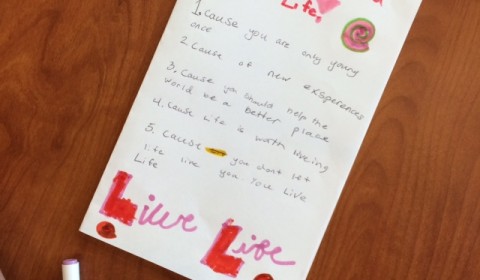 Life.
1. Cause you are only young
once
2. Cause of new exsperences
3. Cause you should help the
world be a better place
4. Cause Life is worth liveing
5. Cause you don't let
life live you You Live
Life
Live Life